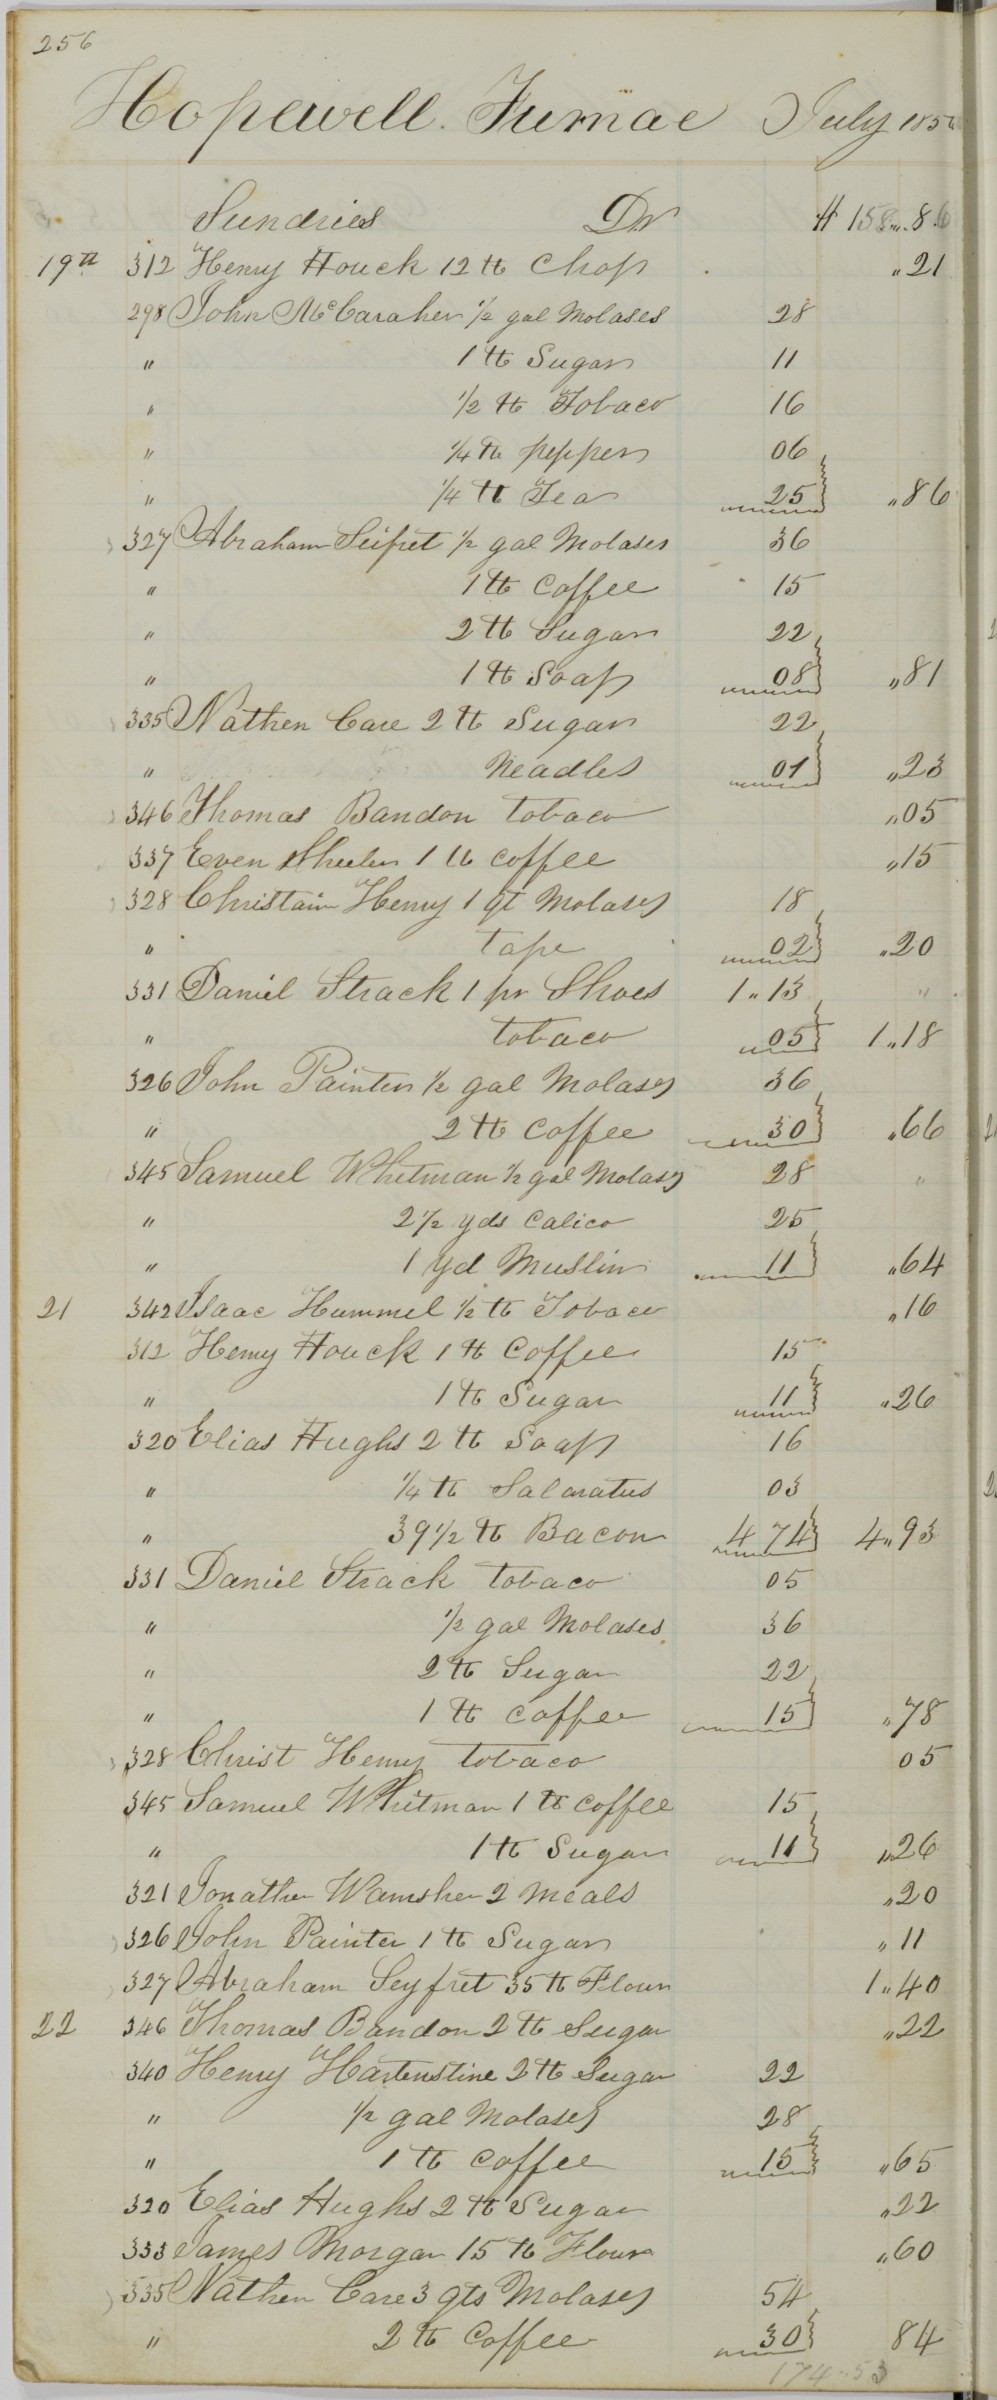 256
Hopewell Furnace July 185
Sundries Dr $ 158.. 86
19th 312 Henry Houck 12 lb Chop " 21
298 John McCaraher 1/2 gal Molases 28
" 1 lb Sugar 11
" 1/2 lb Tobaco 16
" 1/4 lb pepper 06
" 1/4 lb Tea 25 " 86
327 Abraham Seifret 1/2 gal Molases 36
" 1 lb Coffee 15
" 2 lb Sugar 22
" 1 lb Soap 08 " 81
335 Nathen Care 2 lb Sugar 22
" Neadles 01 " 23
346 Thomas Bandon tobaco " 05
337 Even Sheeler 1 lb coffee " 15
328 Christain Henry 1 qt Molases 18
" tape 02 " 20
331 Daniel Strack 1 pr Shoes 1 " 13 "
" tobaco 05 1 " 18
326 John Painter 1/2 gal Molases 36
" 2 lb Coffee 30 " 66
345 Samuel Whitman 1/2 gal Molases 28 "
" 2 1/2 yds Calico 25
" 1 yd Muslin 11 " 64
21 342 Isaac Hummel 1/2 lb Tobaco " 16
312 Henry Houck 1 lb Coffee 15
" 1 lb Sugar 11 " 26
320 Elias Hughs 2 lb Soap 16
" 1/4 lb Salaratus 03
" 39 1/2 lb Bacon 4 74 4 " 93
331 Daniel Strack tobaco 05
" 1/2 gal Molases 36
" 2 lb Sugar 22
" 1 lb Coffee 15 " 78
328 Christ Henry tobaco 05
345 Samuel Whitman 1 lb Coffee 15
" 1 lb Sugar 11 " 26
321 Jonathn Wamsher 2 Meals " 20
326 John Painter 1 lb Sugar " 11
327 Abraham Seyfret 35 lb Flour 1 " 40
22 346 Thomas Bandon 2 lb Sugar " 22
340 Henry Hartenstine 2 lb Sugar 22
" 1/2 gal Molases 28
" 1 lb Coffee 15 " 65
320 Elias Hughs 2 lb Sugar " 22
333 James Morgan 15 lb Flour " 60
335 Nathen Care 3 qts Molases 54
" 2 lb Coffee 30 84
174 .. 53